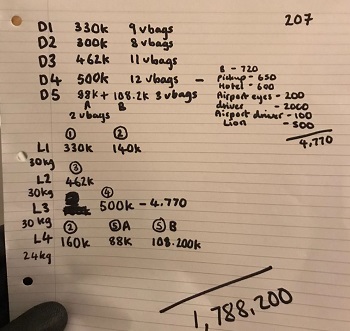 207
D1 330k 9 vbags
D2 300k 8 vbags
D3 462k 11 vbags
D4 500k 12 vbags -
D5 88k + 108.2k 3 vbags
A B
2 vbags
B - 720
Pickup - 650
Hotel - 600
Airport eyes - 200
driver - 2000
Airport driver - 100
Lion - 500
4,770
① ②
L1 330k 140k
30kg ③
L2 462k
30kg ④
L3 500k - 4.770
30kg ② ⑤A ⑤B
L4 160k 88k 108.200k
24kg
1,788,200